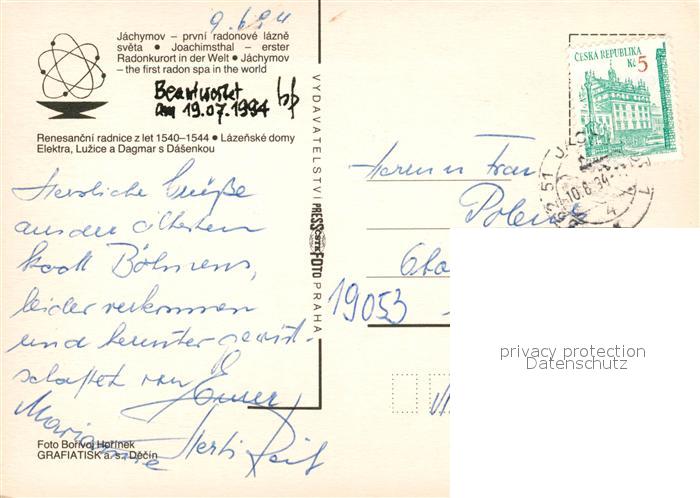 9.6.94
Jáchymov – první radonové lázně
světa • Joachimsthal – erster
Radonkurort in der Welt • Jáchymov
– the first radon spa in the world
Beantwortet
am 19.07.1994
Renesanční radnice z let 1540–1544 • Lázeňské domy
Elektra, Lužice a Dagmar s Dášenkou
Herzliche Grüße
aus der ältesten
Stadt Böhmens,
leider verkommen
und herunter gewirt-
schaftet von
Marianne
Herti
Foto Bořivoj Hořínek
GRAFIATISK a. s. Děčín
VYDAVATELSTVÍ PRESSFOTO PRAHA
ČSTK
ČESKÁ REPUBLIKA
Kč 5
10.6.94
Herrn u Frau
19053
privacy protection
Datenschutz